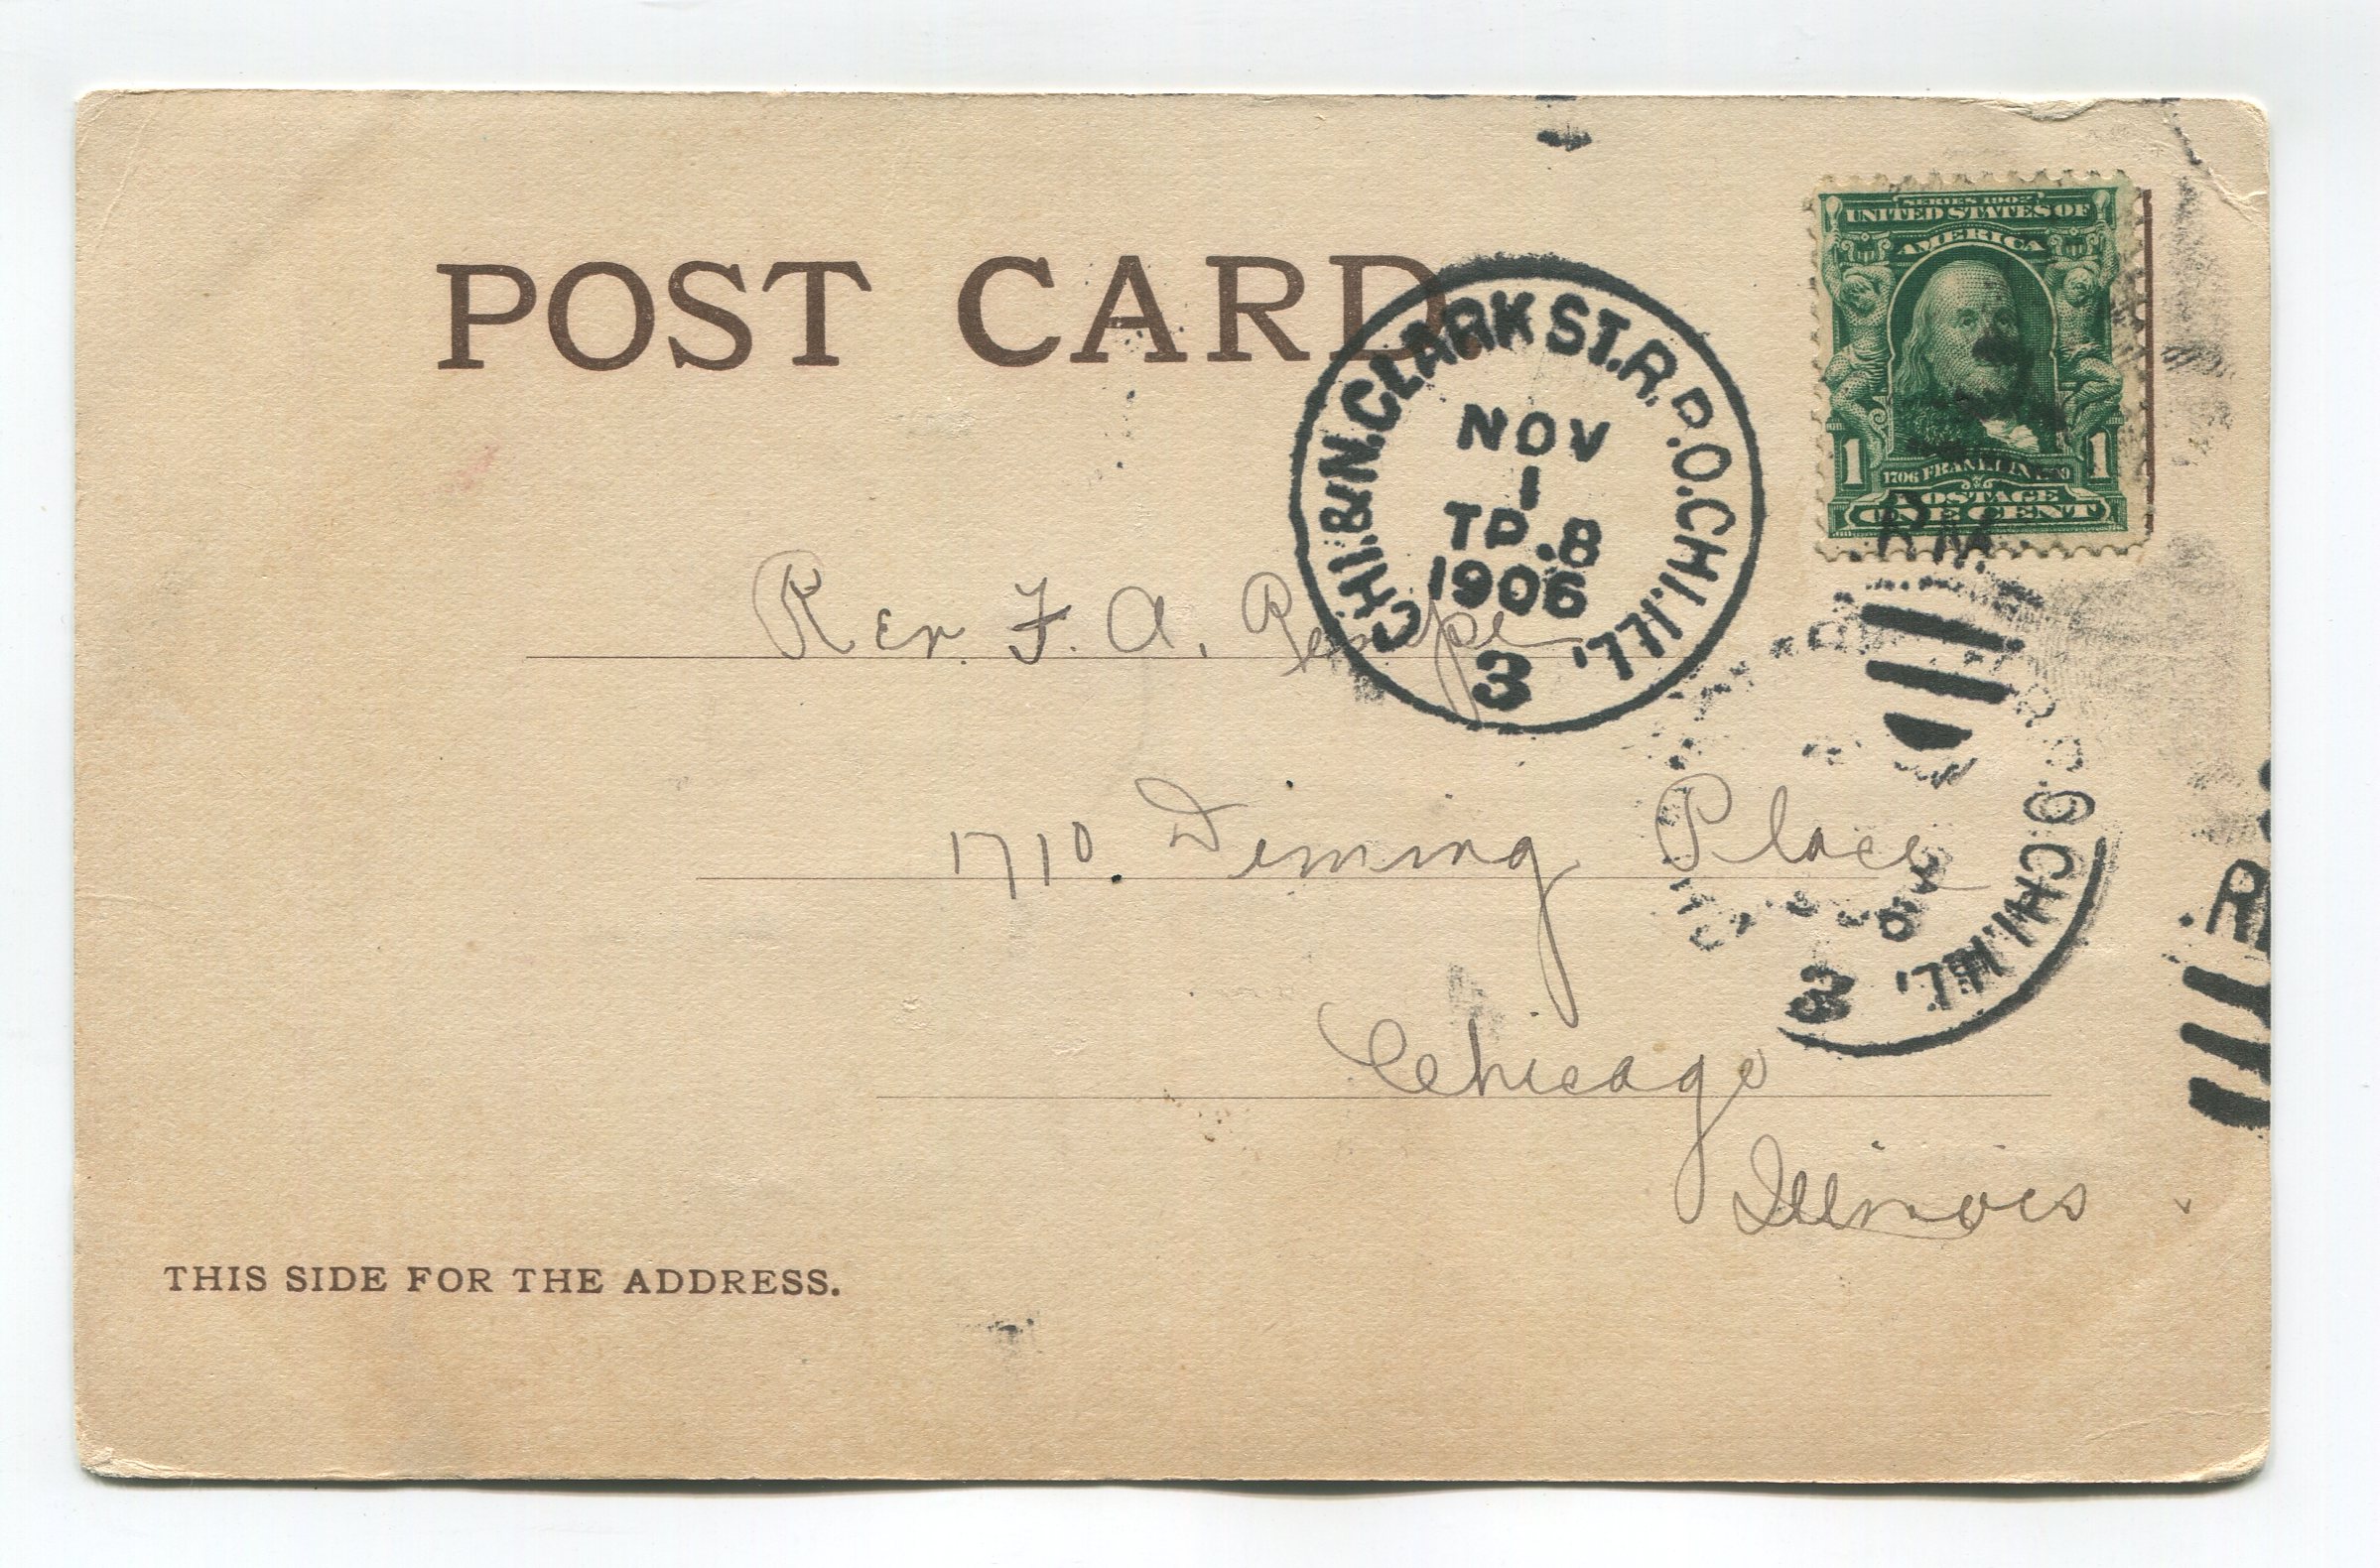 POST CARD.
SERIES 1902
UNITED STATES OF
AMERICA
1 1
1706 FRANKLIN
POSTAGE
ONE CENT
CHI.&N.CLARK ST.R.P.O.CHI.ILL.
NOV
1
TP.8
1906
3
Rev. F. A.
1710. Deming Place
Chicago
Illinois
O.CHI.ILL.
3
.R
THIS SIDE FOR THE ADDRESS.